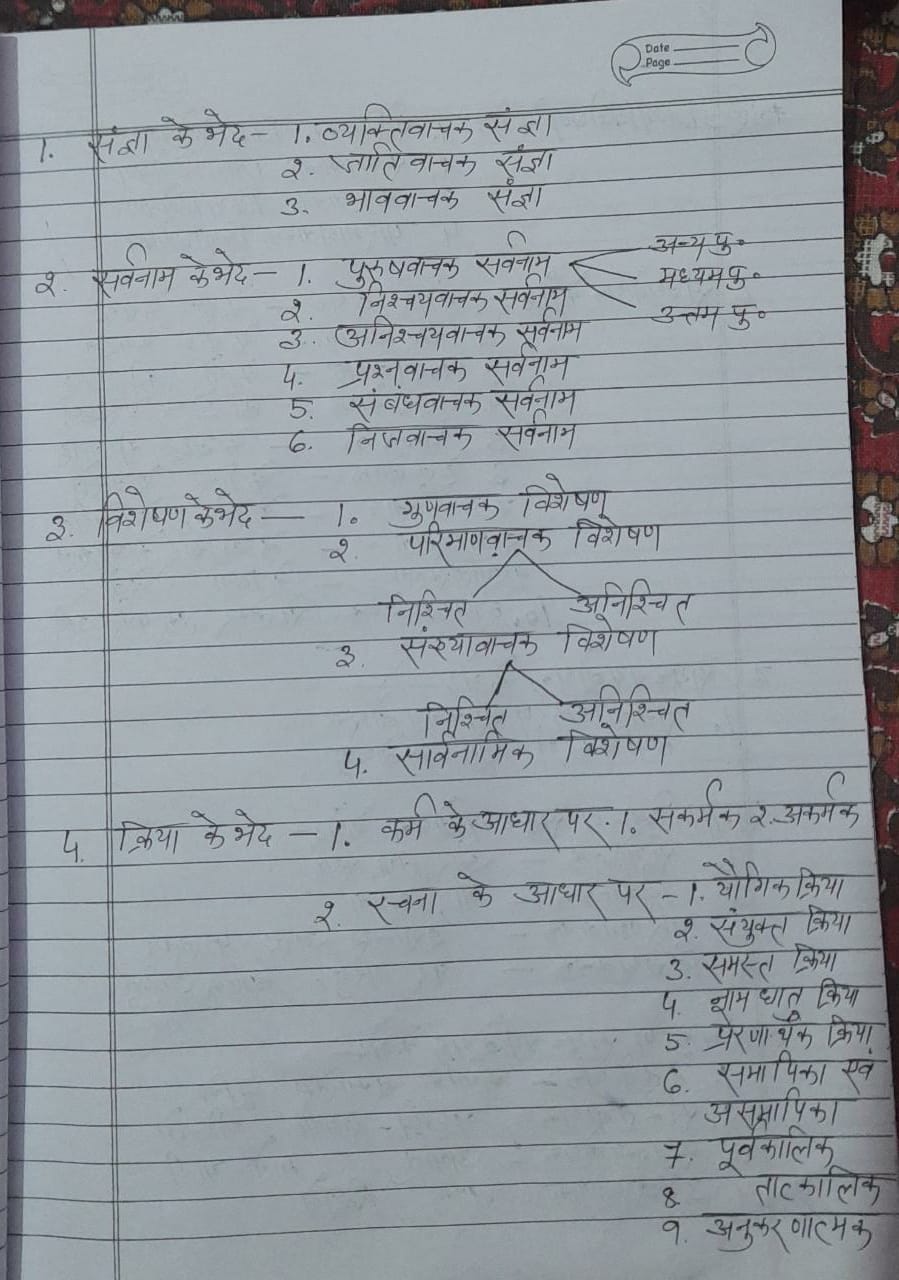 Date
Page
1. संज्ञा के भेद - 1. व्यक्तिवाचक संज्ञा
२. जाति वाचक संज्ञा
3. भाववाचक संज्ञा
२. सर्वनाम के भेद - 1. पुरुषवाचक सर्वनाम अन्य पु॰
मध्यम पु॰
उत्तम पु॰
२. निश्चयवाचक सर्वनाम
3. अनिश्चयवाचक सर्वनाम
4. प्रश्नवाचक सर्वनाम
5. संबंधवाचक सर्वनाम
6. निजवाचक सर्वनाम
३. विशेषण के भेद - 1. गुणवाचक विशेषण
२. परिमाणवाचक विशेषण
निश्चित अनिश्चित
३. संख्यावाचक विशेषण
निश्चित अनिश्चित
4. सार्वनामिक विशेषण
4. क्रिया के भेद - 1. कर्म के आधार पर. 1. सकर्मक २. अकर्मक
२. रचना के आधार पर - 1. यौगिक क्रिया
२. संयुक्त क्रिया
3. समस्त क्रिया
4. नाम धातु क्रिया
5. प्रेरणार्थक क्रिया
6. समापिका एवं
असमापिका
7. पूर्वकालिक
8 तात्कालिक
9. अनुकरणात्मक